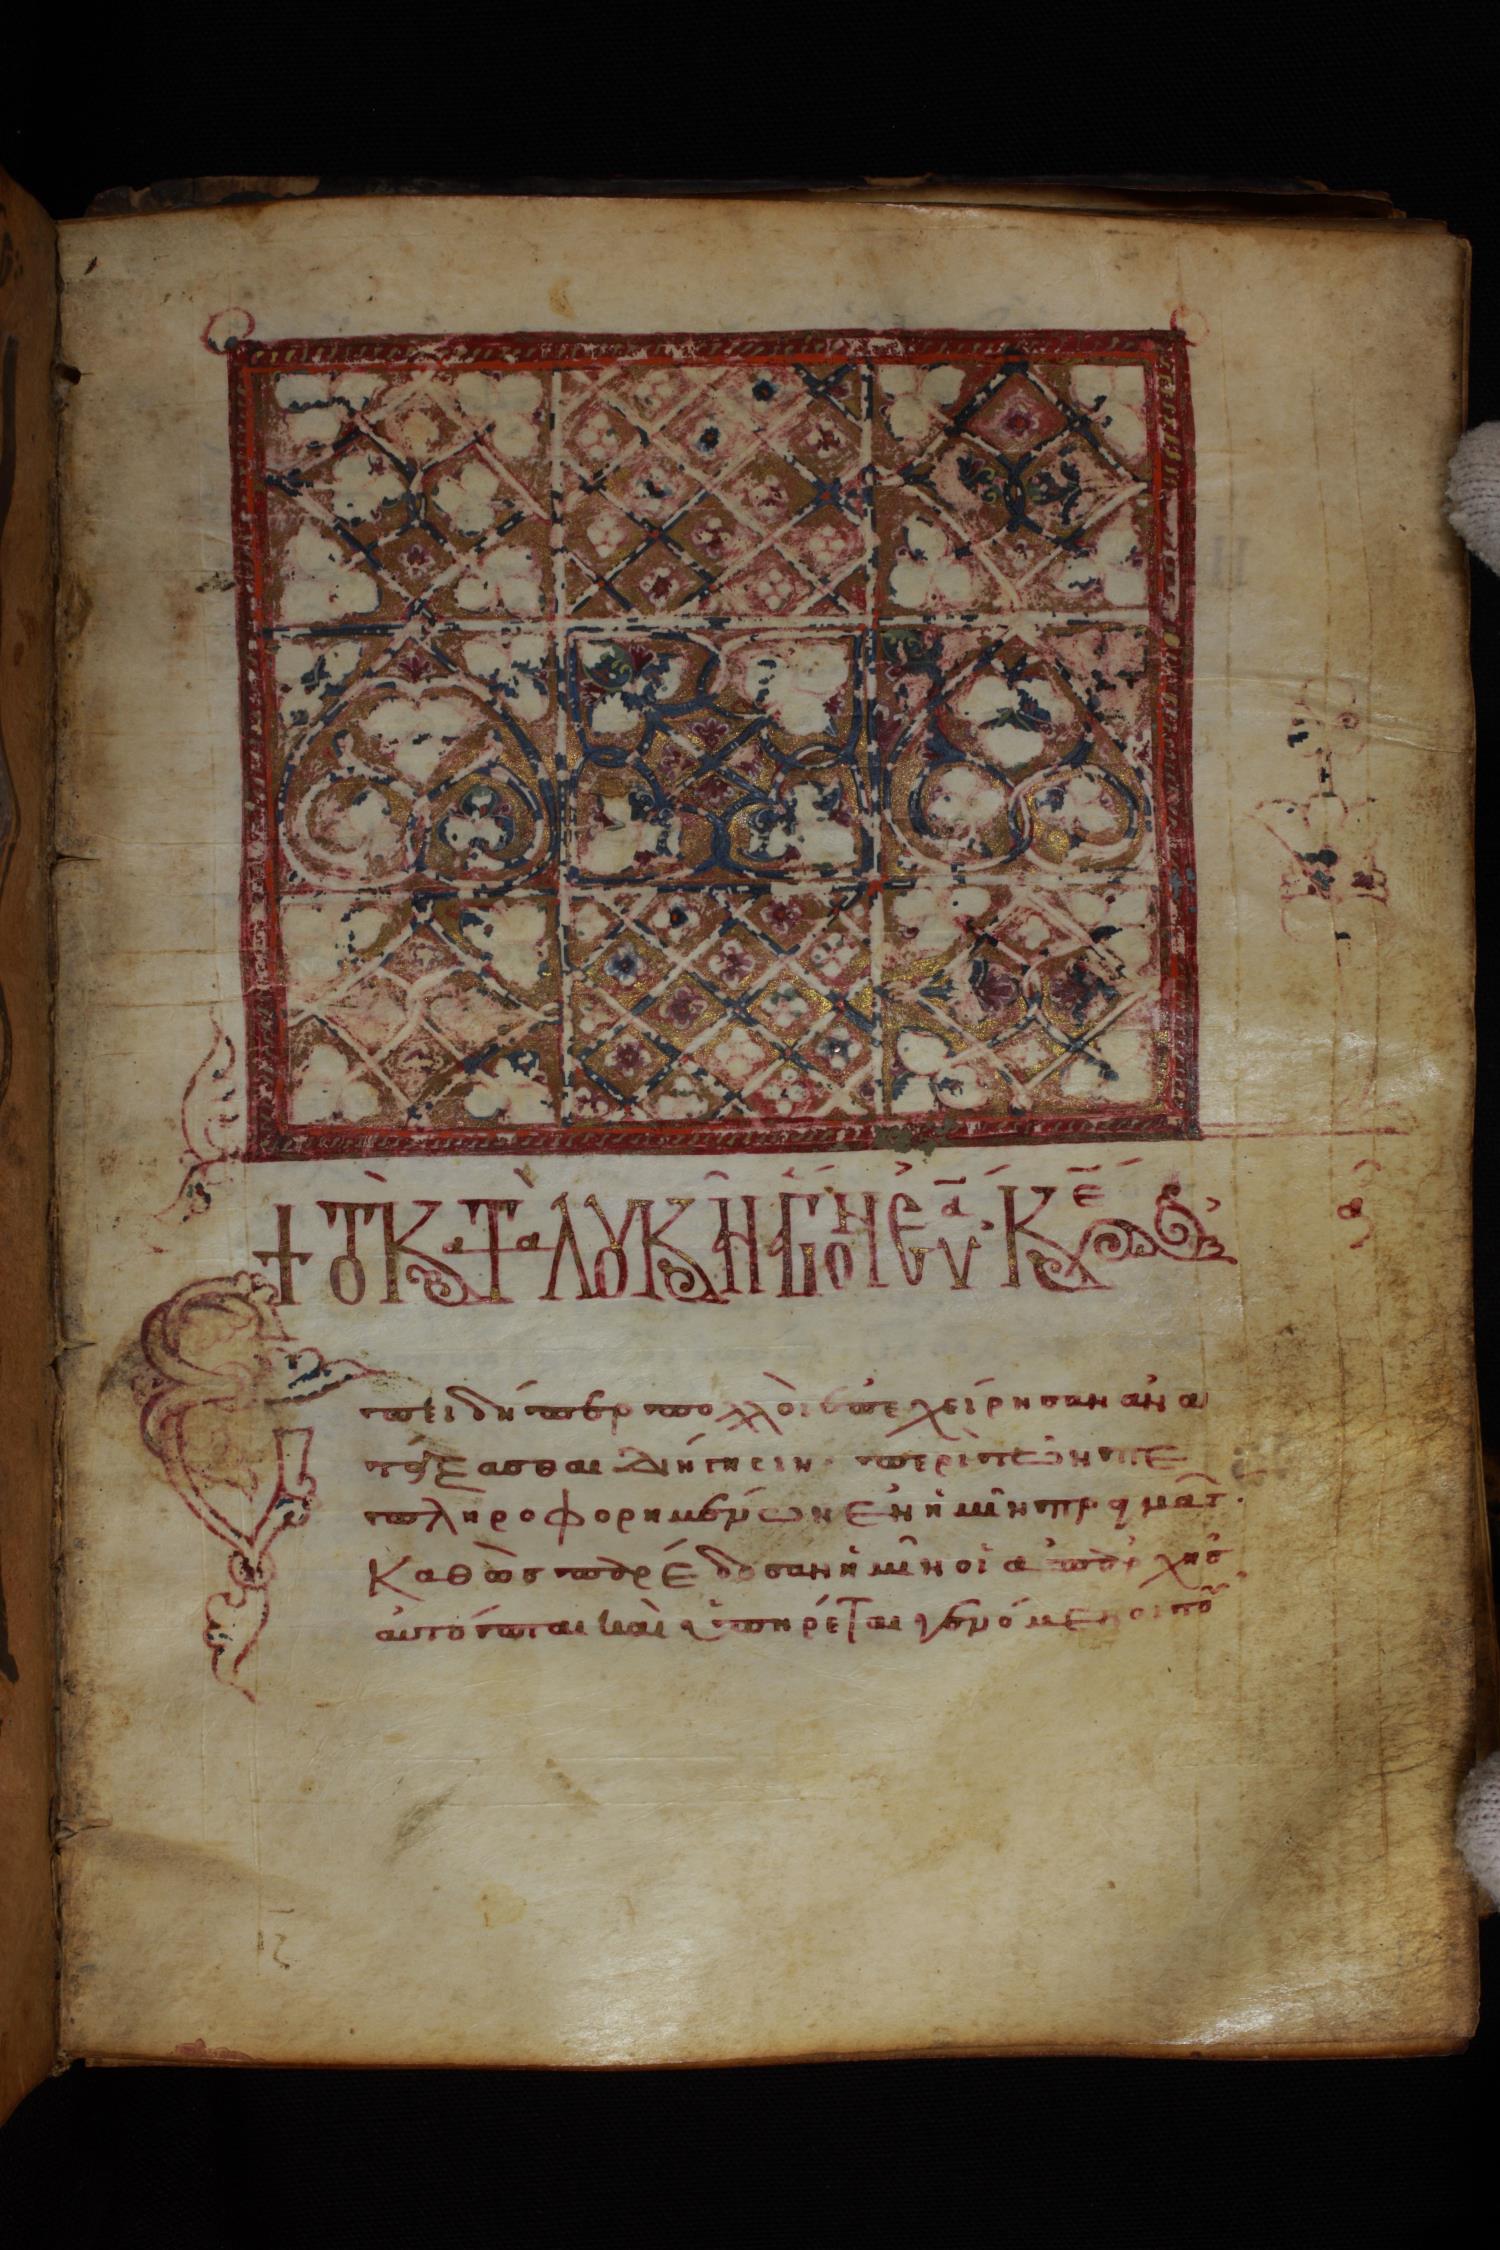 + τοῦ κατὰ λουκ
πειδήπερ πολλοὶ ἐπεχείρησαν ἀνα
τάξασθαι διήγησιν· περὶ τῶν πε
πληροφορημένων ἐν ἡμῖν πραγμάτ·
Καθὼς παρέδοσαν ἡμῖν οἱ ἀπαρχῆς
αὐτόπται καὶ ὑπηρέται γενόμενοι τοῦ